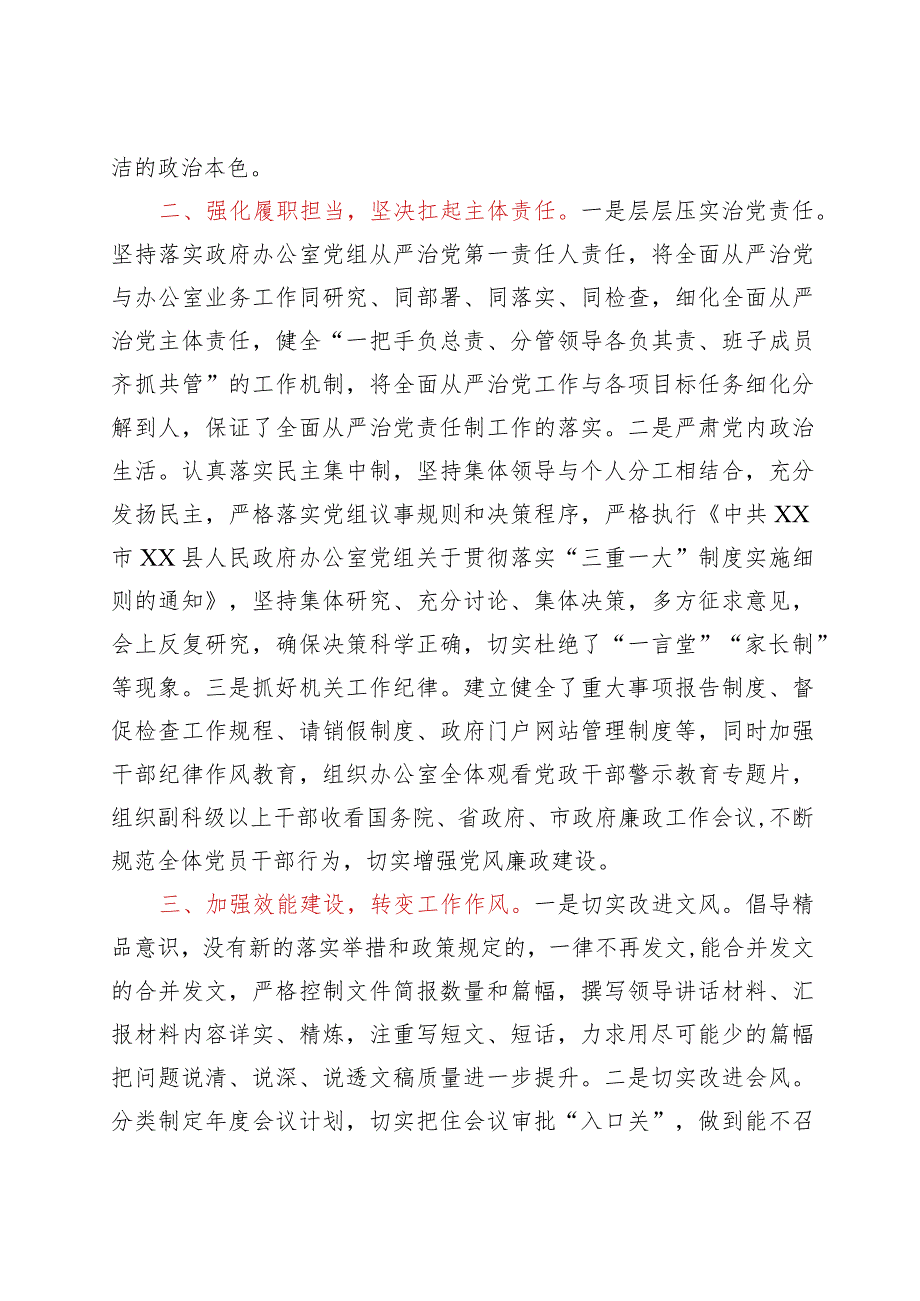 洁的政治本色。
二、强化履职担当，坚决扛起主体责任。一是层层压实治党责任。
坚持落实政府办公室党组从严治党第一责任人责任，将全面从严治党
与办公室业务工作同研究、同部署、同落实、同检查，细化全面从严
治党主体责任，健全“一把手负总责、分管领导各负其责、班子成员
齐抓共管”的工作机制，将全面从严治党工作与各项目标任务细化分
解到人，保证了全面从严治党责任制工作的落实。二是严肃党内政治
生活。认真落实民主集中制，坚持集体领导与个人分工相结合，充分
发扬民主，严格落实党组议事规则和决策程序，严格执行《中共XX
市XX县人民政府办公室党组关于贯彻落实“三重一大”制度实施细
则的通知》，坚持集体研究、充分讨论、集体决策，多方征求意见，
会上反复研究，确保决策科学正确，切实杜绝了“一言堂”“家长制”
等现象。三是抓好机关工作纪律。建立健全了重大事项报告制度、督
促检查工作规程、请销假制度、政府门户网站管理制度等，同时加强
干部纪律作风教育，组织办公室全体观看党政干部警示教育专题片，
组织副科级以上干部收看国务院、省政府、市政府廉政工作会议,不断
规范全体党员干部行为，切实增强党风廉政建设。
三、加强效能建设，转变工作作风。一是切实改进文风。倡导精
品意识，没有新的落实举措和政策规定的，一律不再发文,能合并发文
的合并发文，严格控制文件简报数量和篇幅，撰写领导讲话材料、汇
报材料内容详实、精炼，注重写短文、短话，力求用尽可能少的篇幅
把问题说清、说深、说透文稿质量进一步提升。二是切实改进会风。
分类制定年度会议计划，切实把住会议审批“入口关”，做到能不召